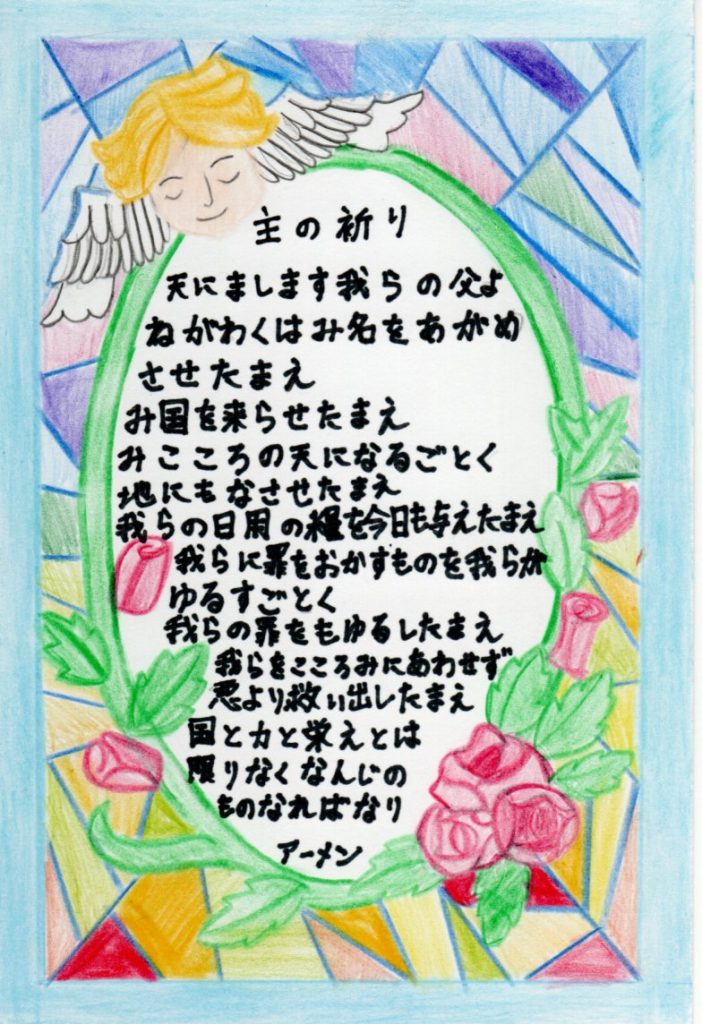 主の祈り
天にまします我らの父よ
ねがわくはみ名をあがめ
させたまえ
み国を来らせたまえ
みこころの天になるごとく
地にもなさせたまえ
我らの日用の糧を今日も与えたまえ
我らに罪をおかすものを我らが
ゆるすごとく
我らの罪をもゆるしたまえ
我らをこころみにあわせず
悪より救い出したまえ
国と力と栄えとは
限りなくなんじの
ものなればなり
アーメン